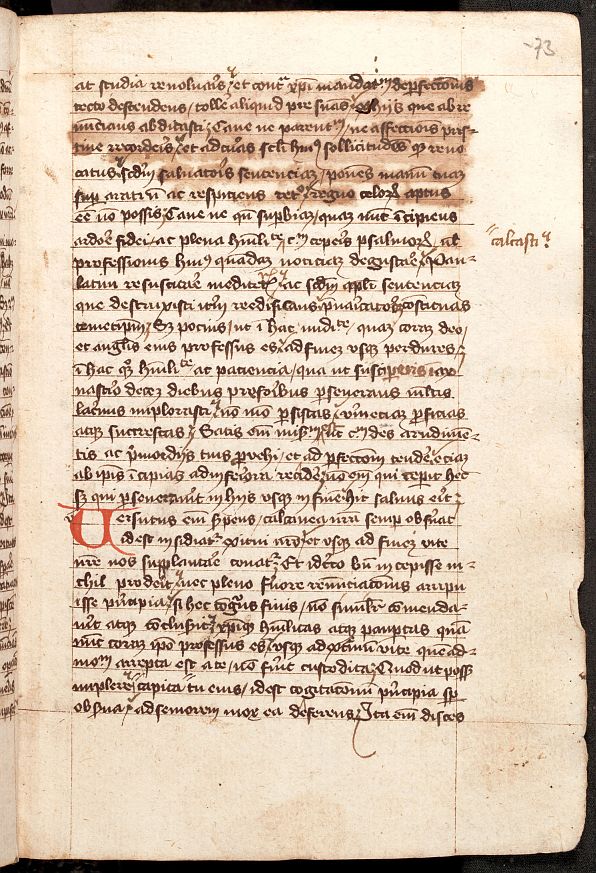 73
at studia revoluaris et contra xpi mandatum de perfectionis
tecto descendens tolle aliquid presumas ex hijs que abre
nuncians abdicasti Cave ne parentum ne affectionis pris-
tine recorderis et ad curas scli huius sollicitudines qz revo
catus scdm salvatoris sentenciam ponens manum tuam
sup aratrum ac respiciens retro regno celorum aptus
esse non possis Cave ne quando superbiam quam nunc incipiens
ardore fidei ac plena humilitate
calcasti
professionis huius quadam noticiam degustare Pau-
latim resuscitare mediteris ac scdm apli sentenciam
que destruxisti iterum reedificans prevaricatorem constituas
temetipsum Sz pocius ut in hac nuditate quam coram deo
et anglis eius professus es ad finem usqz perdures
in hac quoqz humilitate ac paciencia qua ut susciperis in mo
nasterio decem diebus pre foribus perseverans multis
lacrimis implorasti non modo persistas verum eciam proficias
atqz succrescas Satis enim miserum est cum des arudimen-
tis ac primordijs tuis provehi et ad perfectionem tendere eciam
ab ipsis incipias ad inferiora recidere non enim qui ceperit hec
sz qui perseveraverit in hijs usqz in finem hic salvus erit
Versutus enim serpens calcanea nostra semper observat
idest insidiatur exitui nostro et usqz ad finem vite
nostre nos supplantare conatur Et idcirco bene incepisse ni-
chil proderit nec pleno fervore renunciationis arripu
isse principia si hec congruus finis non similiter comenda-
verit atqz concluserit xpiqz humilitas atqz paupertas quam
nunc coram ipso professus es usqz ad extremum vite quead-
modum arrepta est a te non fuerit custodita Quod ut possis
implere capita tu eius idest cogitationum principia semper
observa ad seniorem mox ea deferens Ita enim disces